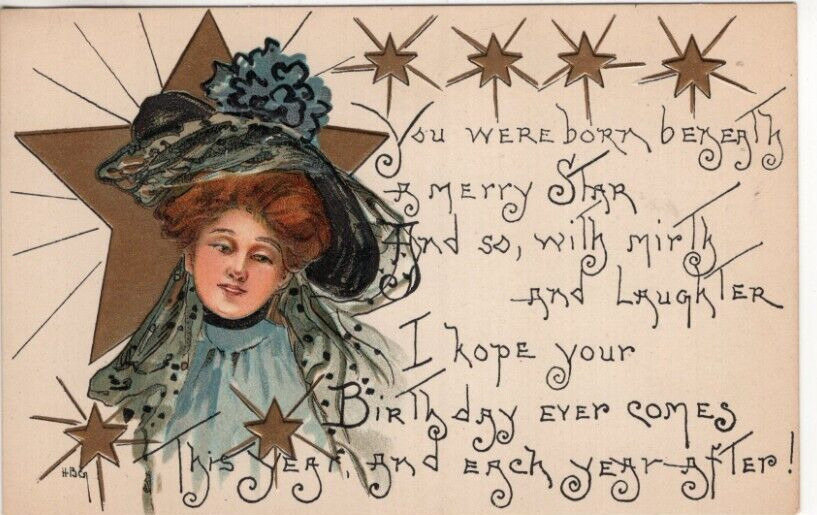 You were born beneath
a merry Star
And so, with mirth
and Laughter
I hope your
Birthday ever comes
This year, and each year after!
HBG